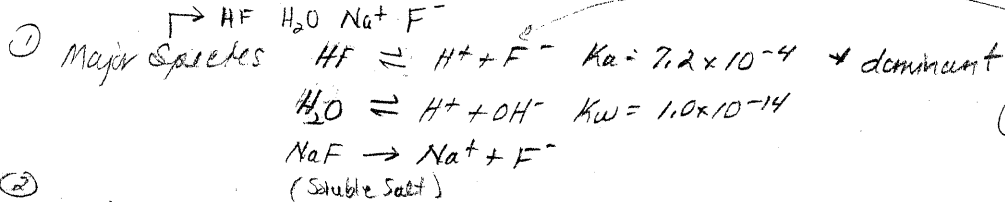 HF H₂O Na⁺ F⁻
① Major Species HF ⇌ H⁺ + F⁻ Ka = 7.2 x 10⁻⁴ * dominant
H₂O ⇌ H⁺ + OH⁻ Kw = 1.0x10⁻¹⁴
NaF → Na⁺ + F⁻
② (Soluble Salt)